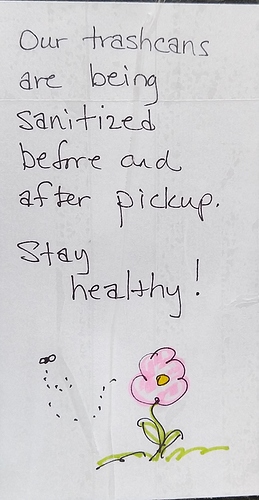 Our trashcans
are being
sanitized
before and
after pickup.
Stay
healthy!